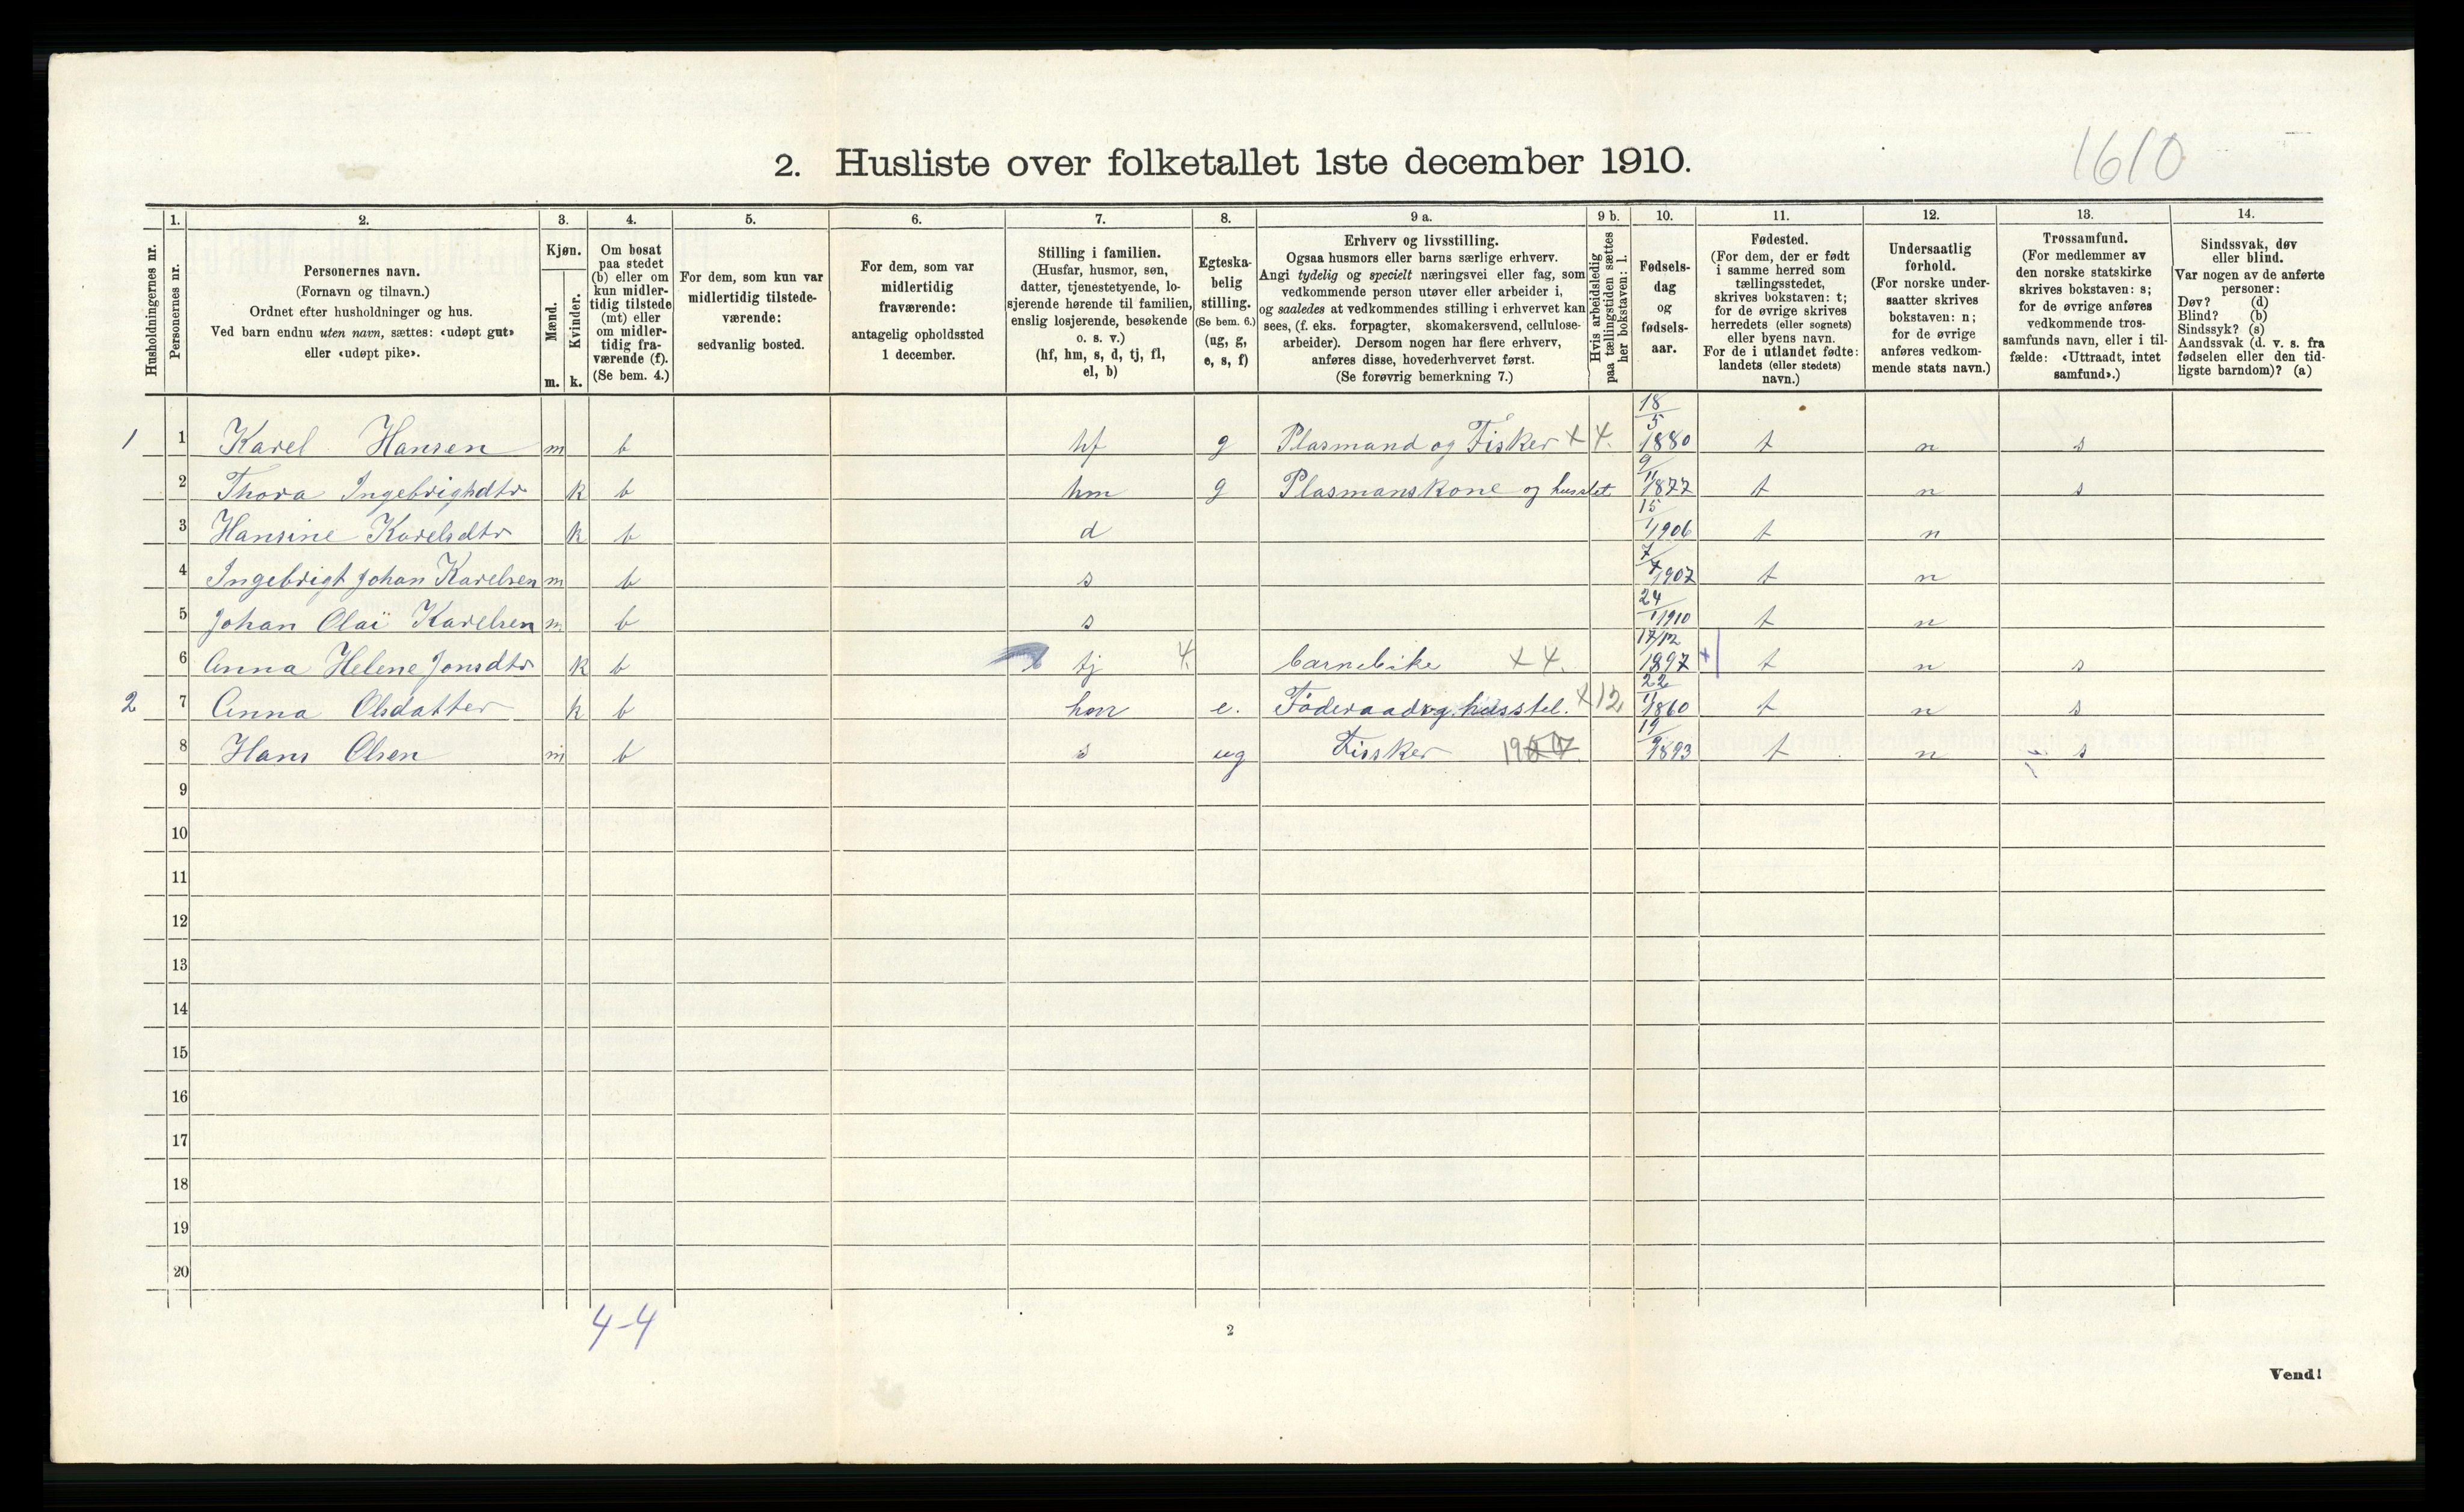 1610
2. Husliste over folketallet 1ste december 1910.
Husholdningernes nr.
1. Personernes nr.
2. Personernes navn. (Fornavn og tilnavn.) Ordnet efter husholdninger og hus. Ved barn endnu uten navn, sættes: «udøpt gut» eller «udøpt pike».
3. Kjøn. Mænd. m. Kvinder. k.
4. Om bosat paa stedet (b) eller om kun midler-tidig tilstede (mt) eller om midler-tidig fra-værende (f). (Se bem. 4.)
5. For dem, som kun var midlertidig tilstede-værende: sedvanlig bosted.
6. For dem, som var midlertidig fraværende: antagelig opholdssted 1 december.
7. Stilling i familien. (Husfar, husmor, søn, datter, tjenestetyende, lo-sjerende hørende til familien, enslig losjerende, besøkende o. s. v.) (hf, hm, s, d, tj, fl, el, b)
8. Egteska-belig stilling. (Se bem. 6.) (ug, g, e, s, f)
9 a. Erhverv og livsstilling. Ogsaa husmors eller barns særlige erhverv. Angi tydelig og specielt næringsvei eller fag, som vedkommende person utøver eller arbeider i, og saaledes at vedkommendes stilling i erhvervet kan sees, (f. eks. forpagter, skomakersvend, cellulose-arbeider). Dersom nogen har flere erhverv, anføres disse, hovederhvervet først. (Se forøvrig bemerkning 7.)
9 b. Hvis arbeidsledig paa tællingstiden sættes her bokstaven: l.
10. Fødsels-dag og fødsels-aar.
11. Fødested. (For dem, der er født i samme herred som tællingsstedet, skrives bokstaven: t; for de øvrige skrives herredets (eller sognets) eller byens navn. For de i utlandet fødte: landets (eller stedets) navn.)
12. Undersaatlig forhold. (For norske under-saatter skrives bokstaven: n; for de øvrige anføres vedkom-mende stats navn.)
13. Trossamfund. (For medlemmer av den norske statskirke skrives bokstaven: s; for de øvrige anføres vedkommende tros-samfunds navn, eller i til-fælde: «Uttraadt, intet samfund».)
14. Sindssvak, døv eller blind. Var nogen av de anførte personer: Døv? (d) Blind? (b) Sindssyk? (s) Aandssvak (d. v. s. fra fødselen eller den tid-ligste barndom)? (a)
1 1 Karel Hansen m b hf g Plasmand og Fisker x 4. 18/5 1880 t n s
2 Thora Ingebrigtsdtr k b hm g Plasmanskone og husstel 9/11 1877 t n s
3 Hansine Karelsdtr k b d 15/1 1906 t n
4 Ingebrigt Johan Karelsen m b s 7/7 1907 t n
5 Johan Olaï Karelsen m b s 24/1 1910 t n
6 Anna Helene Jonsdtr k b x tj 4. barnebike x 4. 17/12 1897 + t n s
2 7 Anna Olsdatter k b hm e. Føderaad og husstel. x 12 22/11 1860 t n s
8 Hans Olsen m b s ug Fissker 19/9 1893 t n s
9
10
11
12
13
14
15
16
17
18
19
20
4-4
2
Vend!